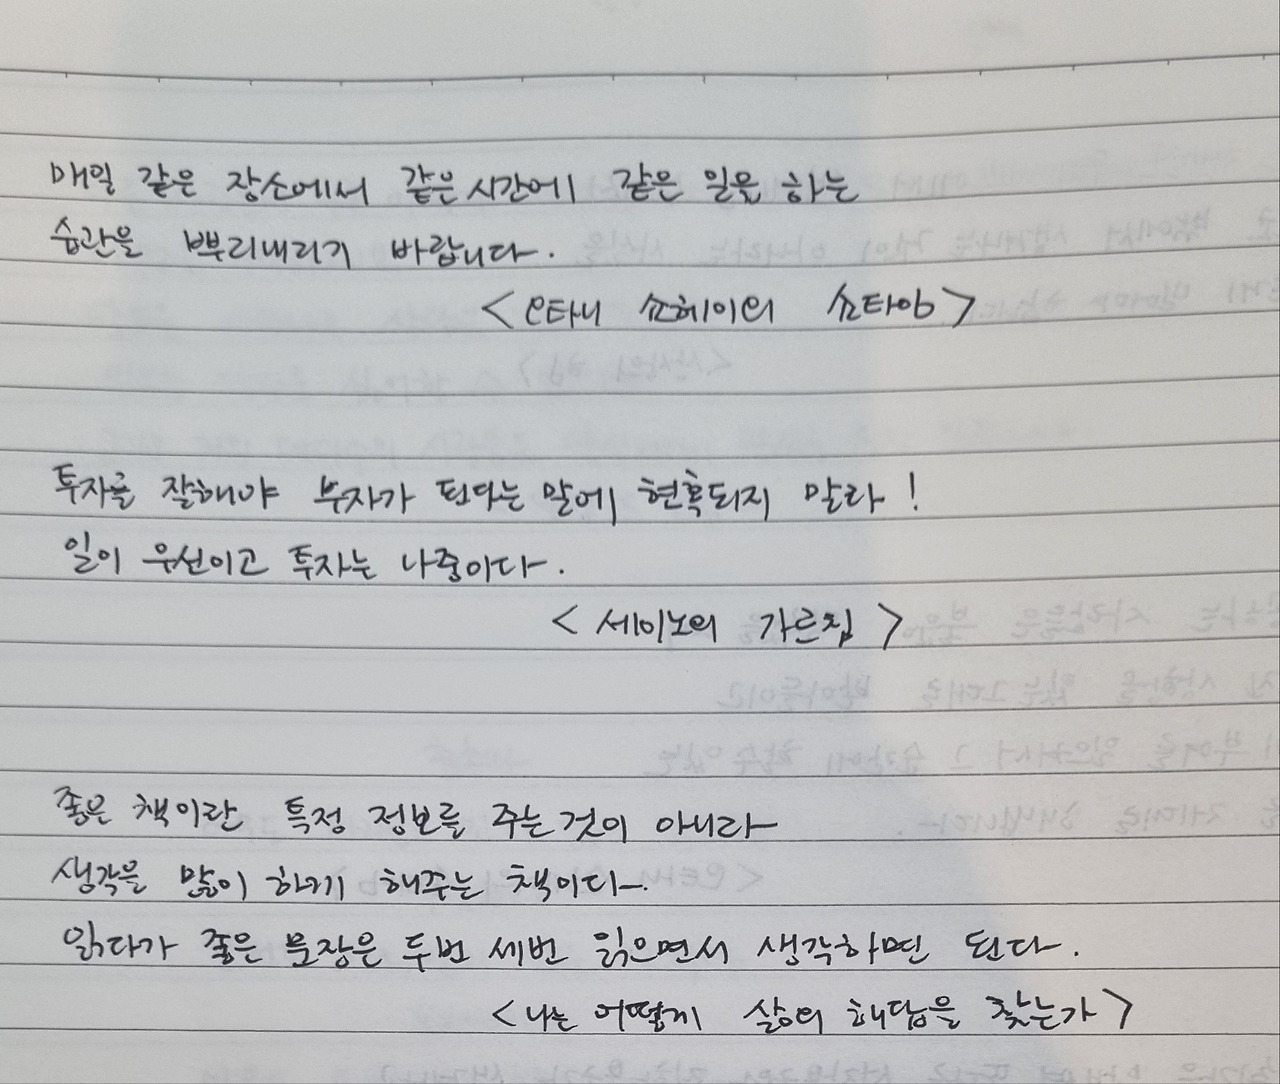 매일 같은 장소에서 같은 시간에 같은 일을 하는
습관을 뿌리내리기 바랍니다.
<오타니 쇼헤이의 쇼타임>
투자를 잘해야 부자가 된다는 말에 현혹되지 말라!
일이 우선이고 투자는 나중이다.
<세이노의 가르침>
좋은 책이란 특정 정보를 주는것이 아니라
생각을 많이 하게 해주는 책이다.
읽다가 좋은 문장은 두번 세번 읽으면서 생각하면 된다.
<나는 어떻게 삶의 해답을 찾는가>